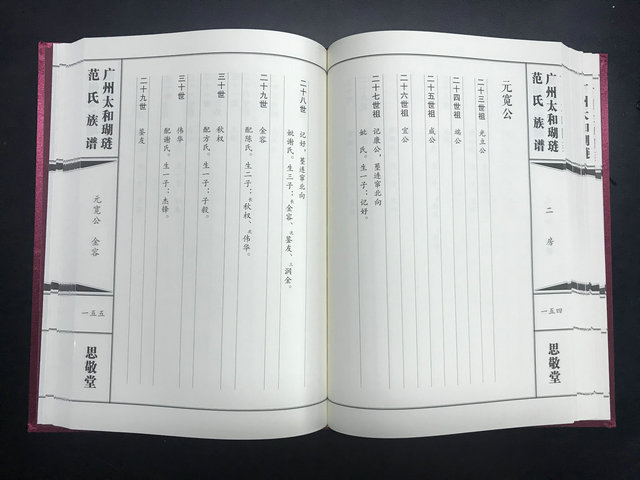 广州太和瑚琏
范氏族谱
二房
一五四
思敬堂
元宽公
二十三世祖 光立公
二十四世祖 瑞公
二十五世祖 成公
二十六世祖 宝公
二十七世祖 记廉公，葬莲窜北向
姚 氏。生一子：记好。
二十八世 记好，葬莲窜北向
妣谢氏。生三子：长金容、次鉴友、三润金。
二十九世 金容
配陈氏。生二子：长秋权、次伟华。
三十世 秋权
配方氏。生一子：子毅。
三十世 伟华
配谢氏。生一子：杰锋。
二十九世 鉴友
广州太和瑚琏
范氏族谱
元宽公 金容
一五五
思敬堂